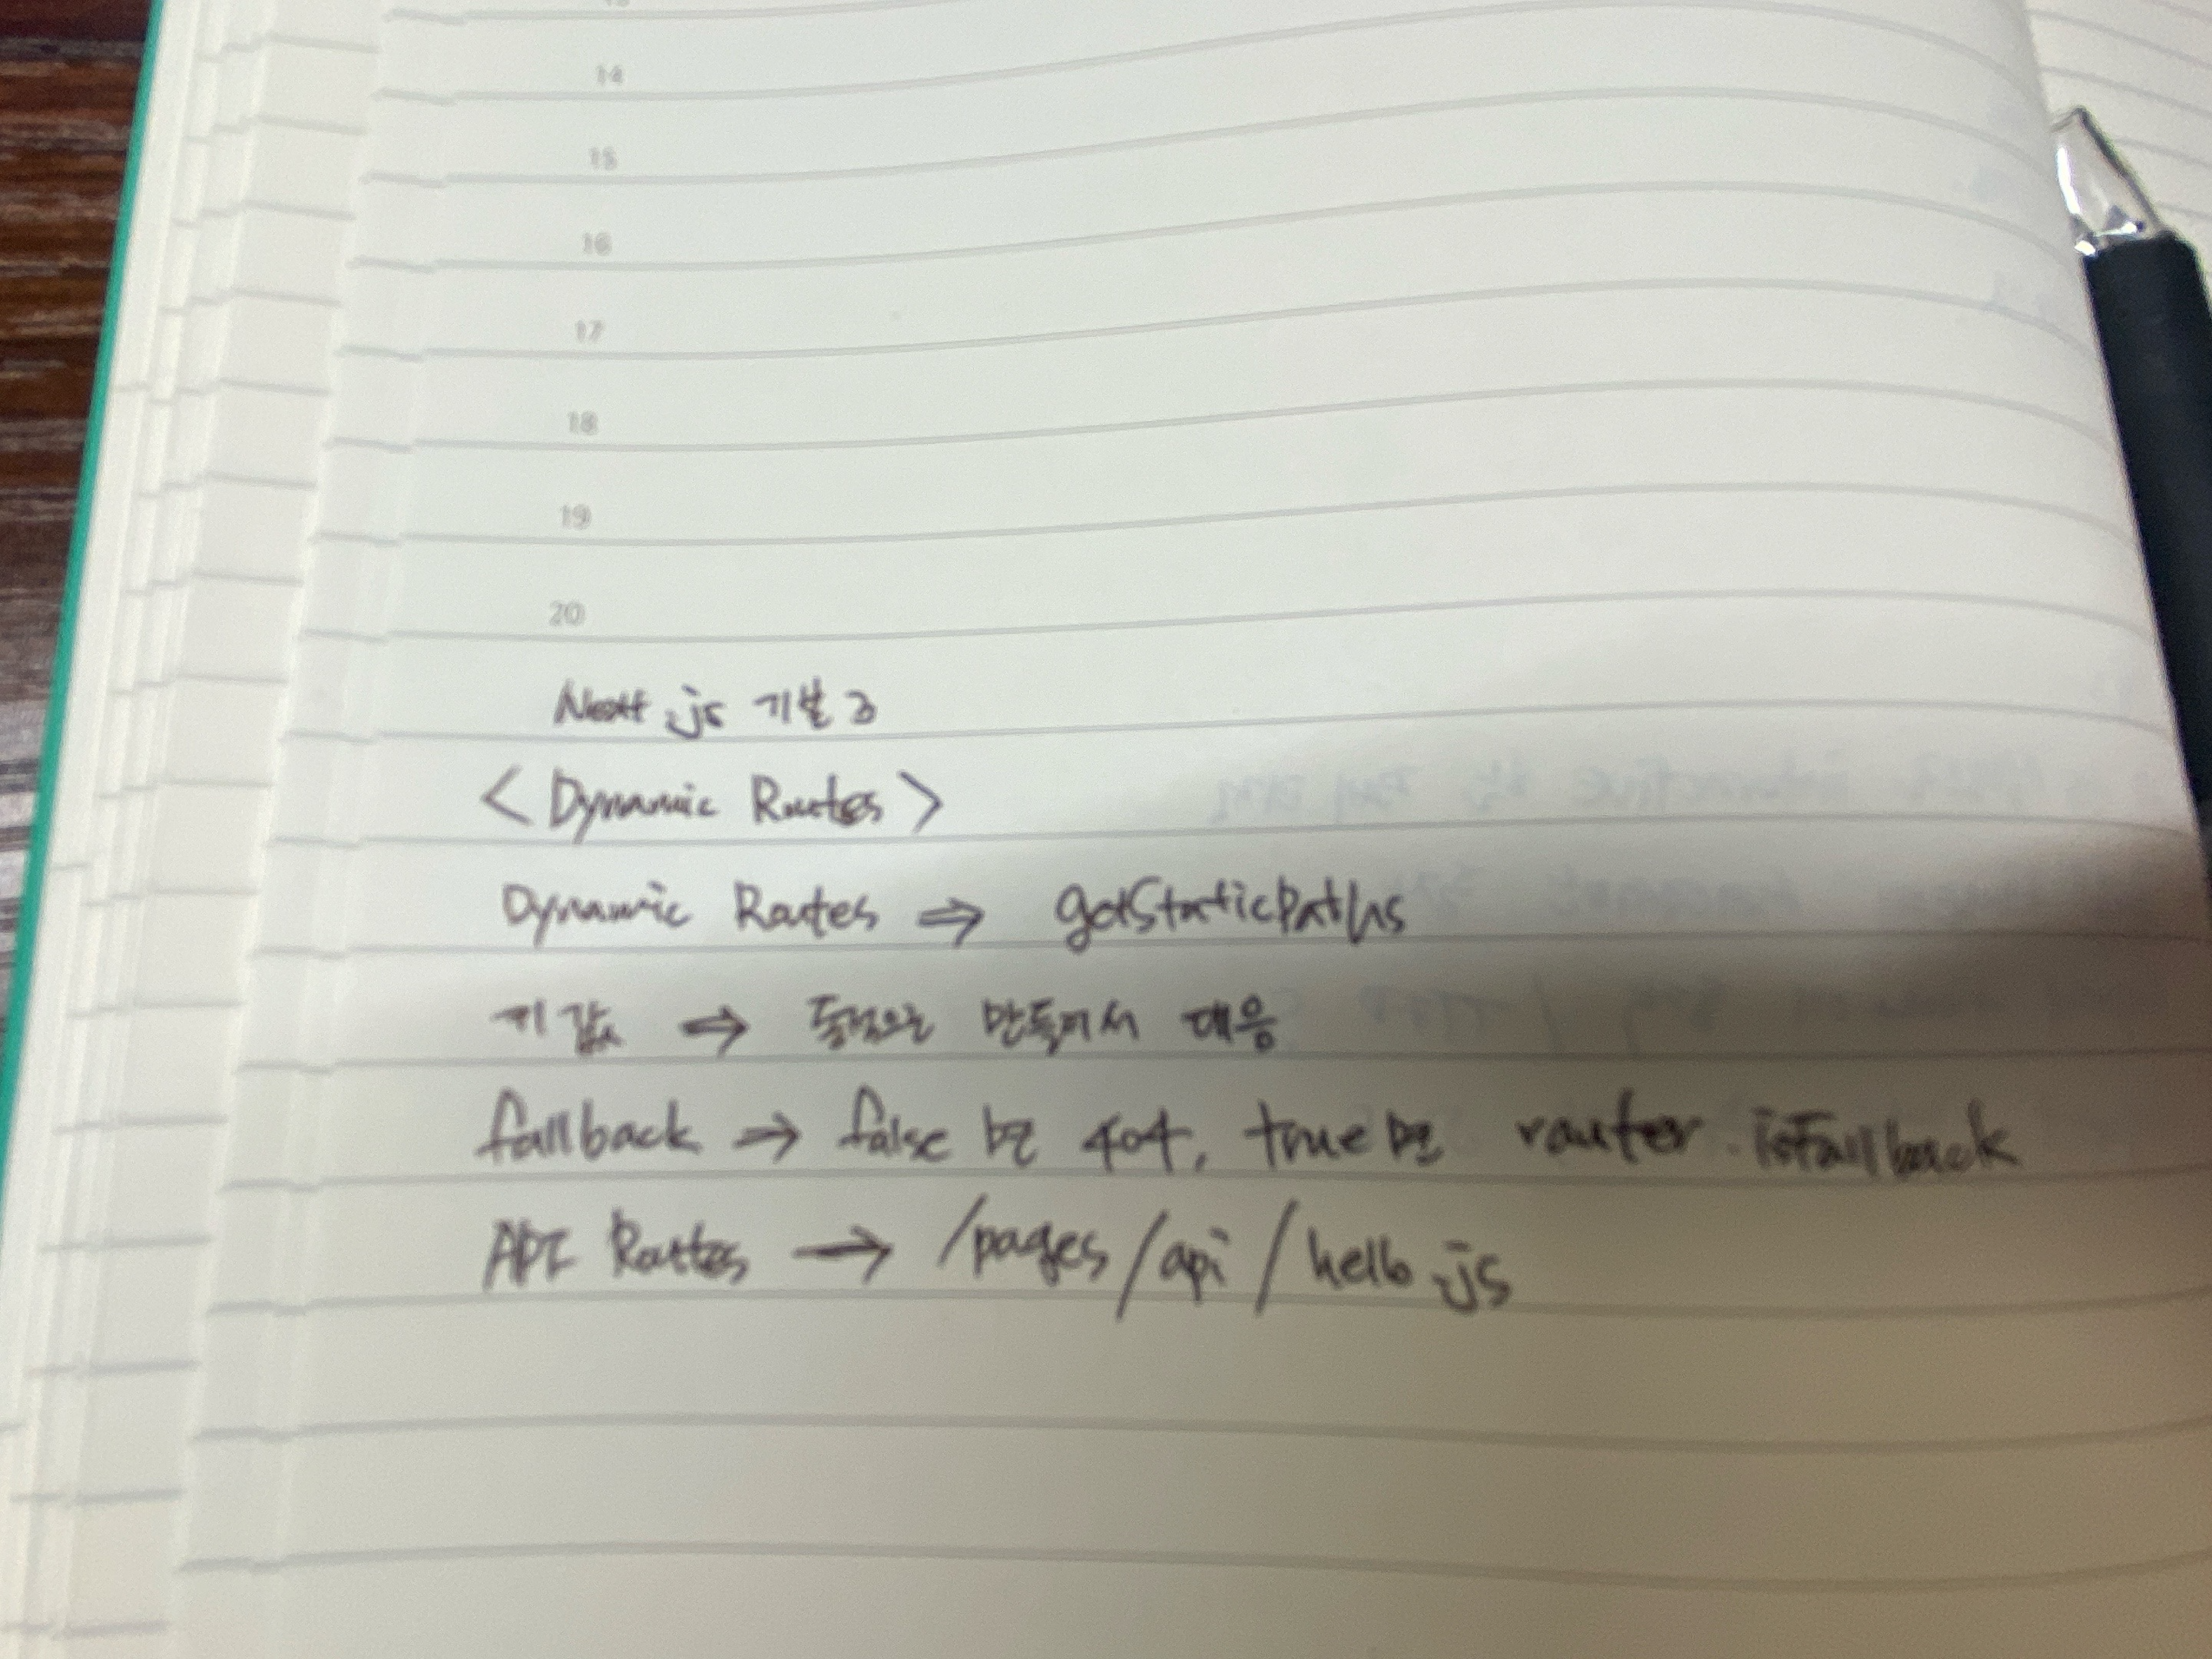 14
15
16
17
18
19
20
Next.js 기본 3
< Dynamic Routes >
Dynamic Routes ⇒ getStaticPaths
키 값 ⇒ 동적으로 만들어서 대응
fallback ⇒ false 면 404, true 면 router.isFallback
API Routes → /pages/api/hello.js